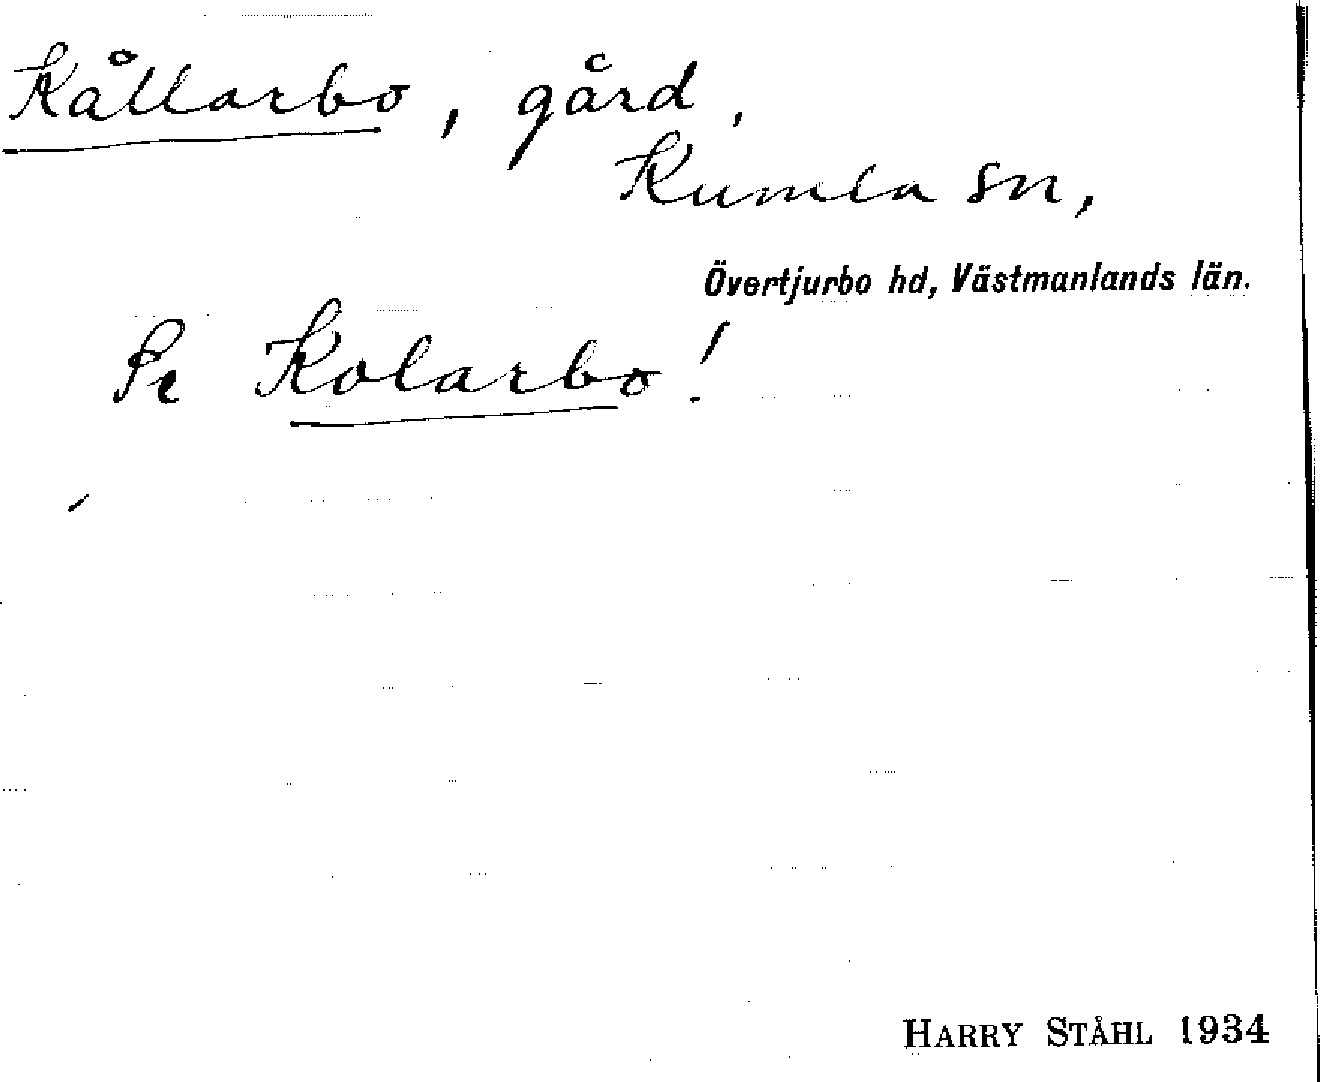 Kållarbo, gård,
Kumla sn,
Övertjurbo hd, Västmanlands län.
Se Kolarbo!
HARRY STÅHL 1934